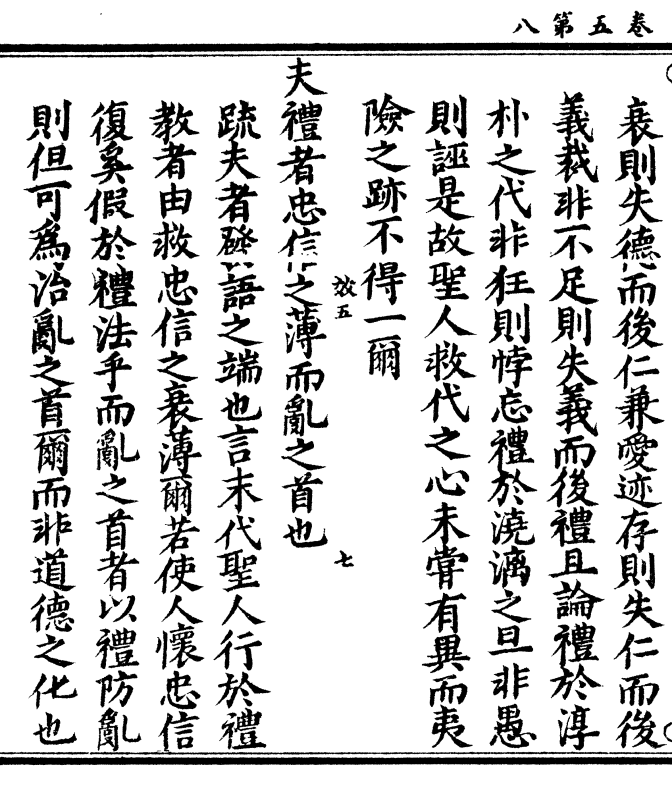 卷五第八
衰則失德而後仁兼愛迹存則失仁而後
義裁非不足則失義而後禮且論禮於淳
朴之代非狂則悖忘禮於澆漓之旦非愚
則誣是故聖人救代之心未甞有異而夷
險之跡不得一爾
效五
七
夫禮者忠信之薄而亂之首也
疏夫者發語之端也言末代聖人行於禮
教者由救忠信之衰薄爾若使人懷忠信
復奚假於禮法乎而亂之首者以禮防亂
則但可為治亂之首爾而非道德之化也